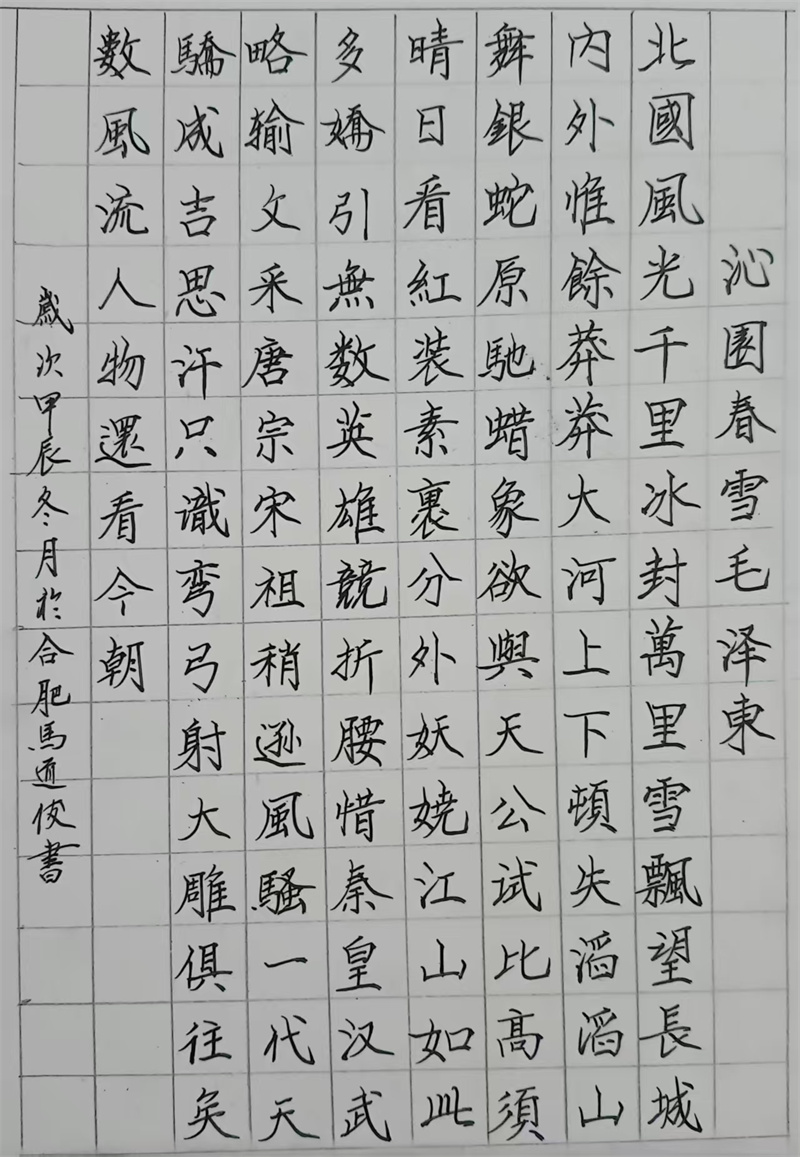 沁園春雪毛泽東
北國風光千里冰封萬里雪飄望長城
内外惟餘莽莽大河上下頓失滔滔山
舞銀蛇原馳蜡象欲與天公試比高須
晴日看紅装素裹分外妖娆江山如此
多嬌引無数英雄競折腰惜秦皇汉武
略输文采唐宗宋祖稍逊風騷一代天
驕成吉思汗只識弯弓射大雕俱往矣
數風流人物還看今朝
歲次甲辰冬月於合肥馬道俊書